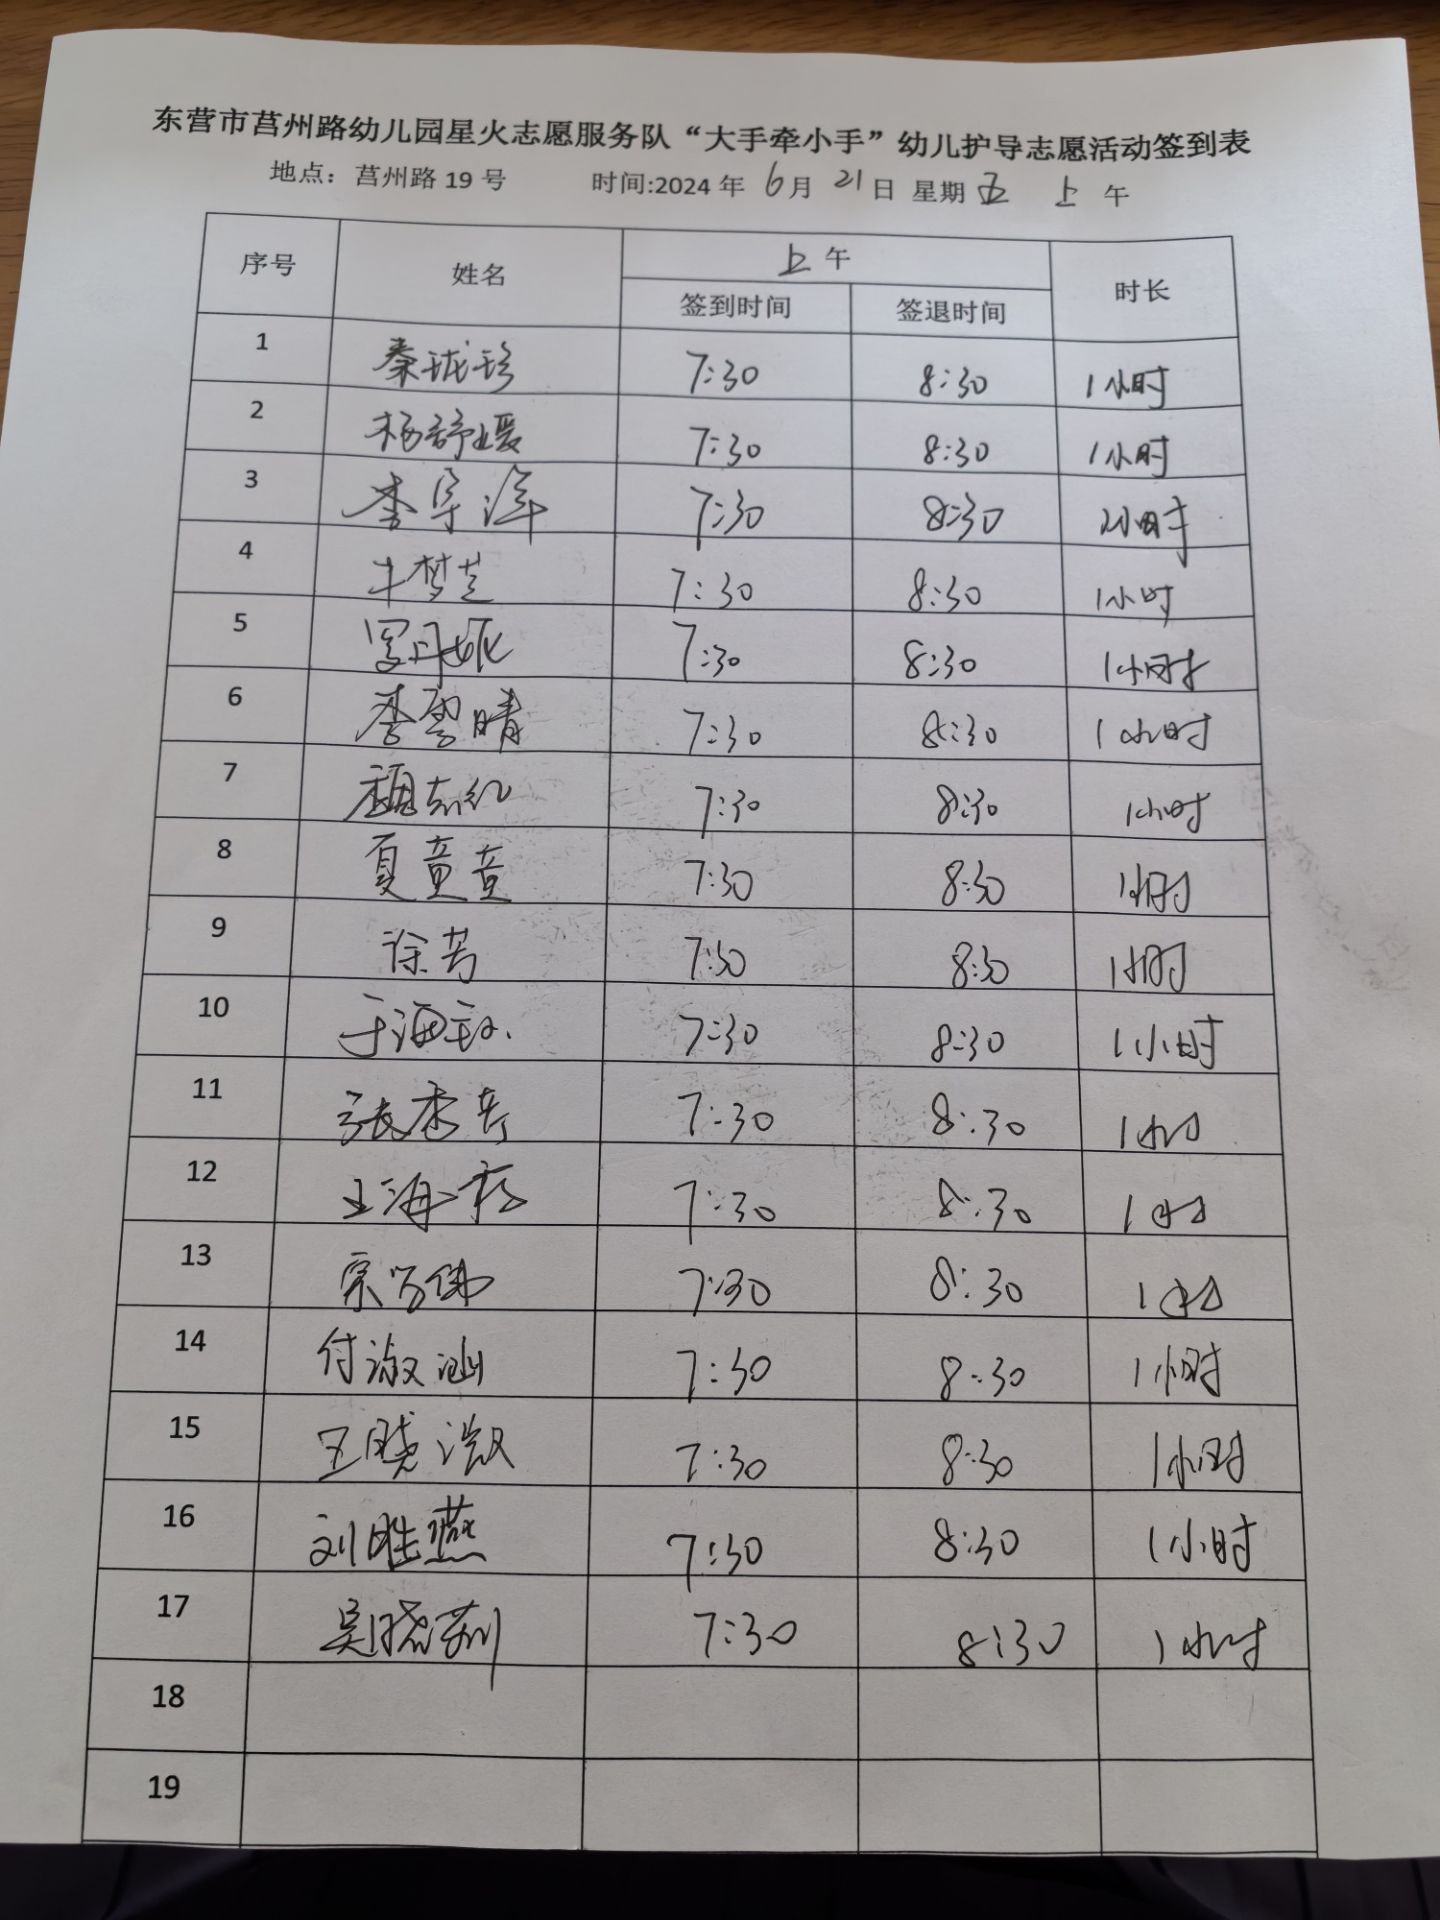 东营市莒州路幼儿园星火志愿服务队“大手牵小手”幼儿护导志愿活动签到表
地点：莒州路 19 号 时间:2024 年 6 月 21 日 星期 五 上 午
序号 姓名 上 午 时长
签到时间 签退时间
1 秦珑珍 7:30 8:30 1小时
2 杨舒媛 7:30 8:30 1小时
3 李 7:30 8:30 小时
4 牛梦芝 7:30 8:30 1小时
5 罗丹妮 7:30 8:30 1小时
6 李雪晴 7:30 8:30 1小时
7 魏志红 7:30 8:30 1小时
8 夏童童 7:30 8:30 1小时
9 徐芳 7:30 8:30 1小时
10 于海 7:30 8:30 1小时
11 张 7:30 8:30 1小时
12 王海 7:30 8:30 1小时
13 宗 7:30 8:30 1小时
14 付淑涵 7:30 8:30 1小时
15 王晓淑 7:30 8:30 1小时
16 刘胜燕 7:30 8:30 1小时
17 吴晓莉 7:30 8:30 1小时
18
19